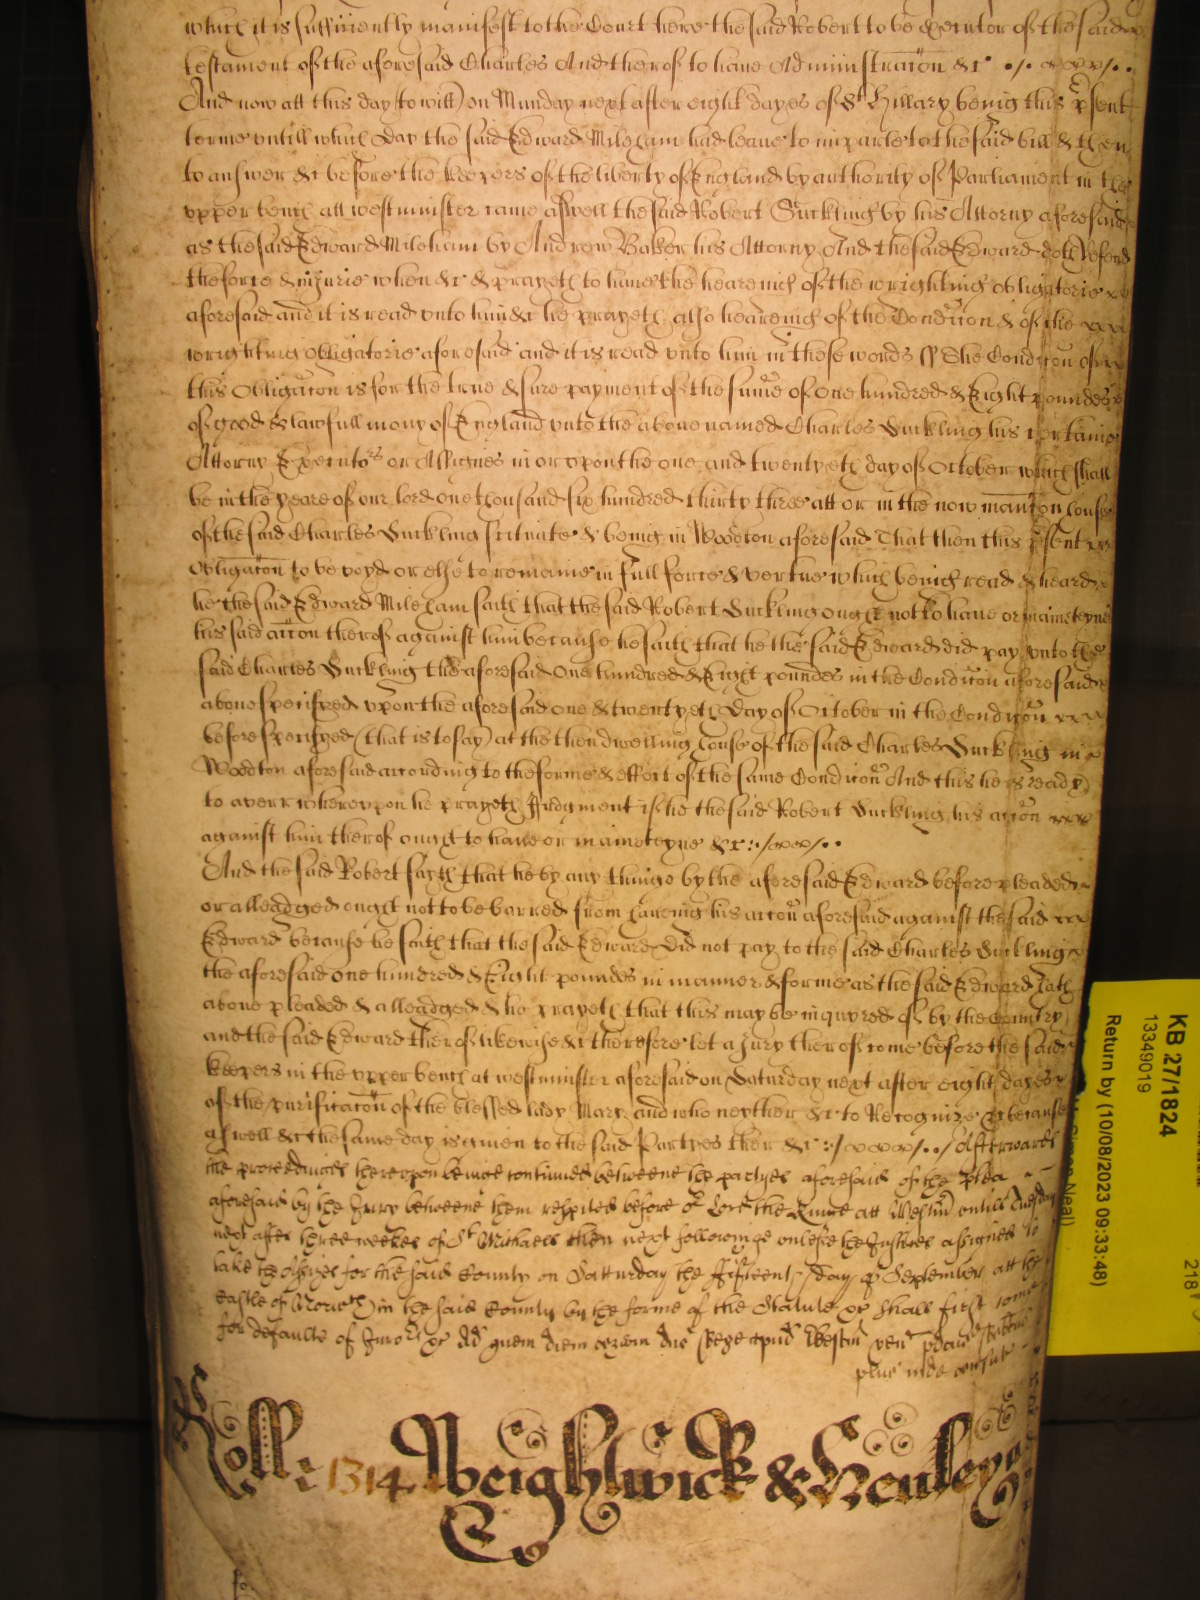 which it is suffitiently manifest to the Court here the said Robert to be Executor of the said
testament of the aforesaid Charles And therof to haue Administracōn &c
And now att this day (to witt) on Munday next after eight dayes of St Hillary being this p̱sent
terme vntill which day the said Edward Mileham had leaue to imparle to the said bill & then
to answer &c before the keepers of the liberty of England by authority of Parliament in the
vpper bench att westminster came aswell the said Robert Suckling by his Attorny aforesaid
as the said Edward Mileham by Andrew Baker his Attorny And the said Edward doth defend
the force & iniurie when &c & prayeth to haue the heareing of the wrighting obligatorie
aforesaid and it is read vnto him &c he prayeth also heareing of the Condicōn & of the
wrighting obligatorie aforesaid and it is read vnto him in these words ss The Condicōn of
this Obligacōn is for the true & sure payment of the sum̄e of One hundred & Eight poundes
of good & lawfull mony of England vnto the aboue named Charles Suckling his certaine
Attorny Executors or Assignes in or vpon the one and twentyeth day of October which shall
be in the yeare of our lord one thousand six hundred thirty three att or in the now mancōn house
of the said Charles Suckling scituate & being in Woodton aforesaid That then this p̱sent
Obligacōn to be voyd or else to remaine in full force & vertue which being read & heard
he the said Edward Mileham saith that the said Robert Suckling ought not to haue or mainteyne
his said accōn therof against him because he saith that he the said Edward did pay vnto the
said Charles Suckling the aforesaid One hundred & Eight poundes in the Condicōn aforesaid
aboue specifyed vpon the aforesaid one & twentyeth day of October in the Condicōn
before specifyed (that is to say) at the then dwelling house of the said Charles Suckling in
Woodton aforesaid according to the forme & effect of the same Condicōn And this he is ready
to averr wherevpon he prayeth Judgment if he the said Robert Suckling his accōn
against him therof ought to haue or mainteyne &c
And the said Robert sayth that he by any thinge by the aforesaid Edward before pleaded
or alleadged ought not to be barred from haueing his accōn aforesaid against the said
Edward because he saith that the said Edward did not pay to the said Charles Suckling
the aforesaid one hundred & Eight poundes in manner & forme as the said Edward hath
aboue pleaded & alleadged & he prayeth that this may be inquyred of by the Country
and the said Edward therof likewise &c therefore let a Jury therof come before the said
keepers in the vpper bench at westminster aforesaid on Saturday next after eight dayes
of the purificacōn of the blessed lady Mary and who neyther &c to Recognize &c because
aswell &c the same day is giuen to the said Partyes ther &c Afterwards
the proceedinges therevpon beinge continued betweene the partyes aforesaid of the Plea
aforesaid by the Jurry betweene them respited before or Lord the Kinge att Westm̄ vntill Tuesday
next after three weekes of St Michaell then next followinge vnlesse the Justices assigned to
take the Assizes for the said County on Satturday the Fifteenth day of September att the
Castle of Norwch in the said County by the forme of the Statute &c shall first come
for defaulte of Juro &c Ad quem diem coram Dn̄o Rege apud Westm̄ ven̄
plus inde
Roll: 1314 Weightwick & Henley
KB 27/1824
13349019
Return by (10/08/2023 09:33:48)